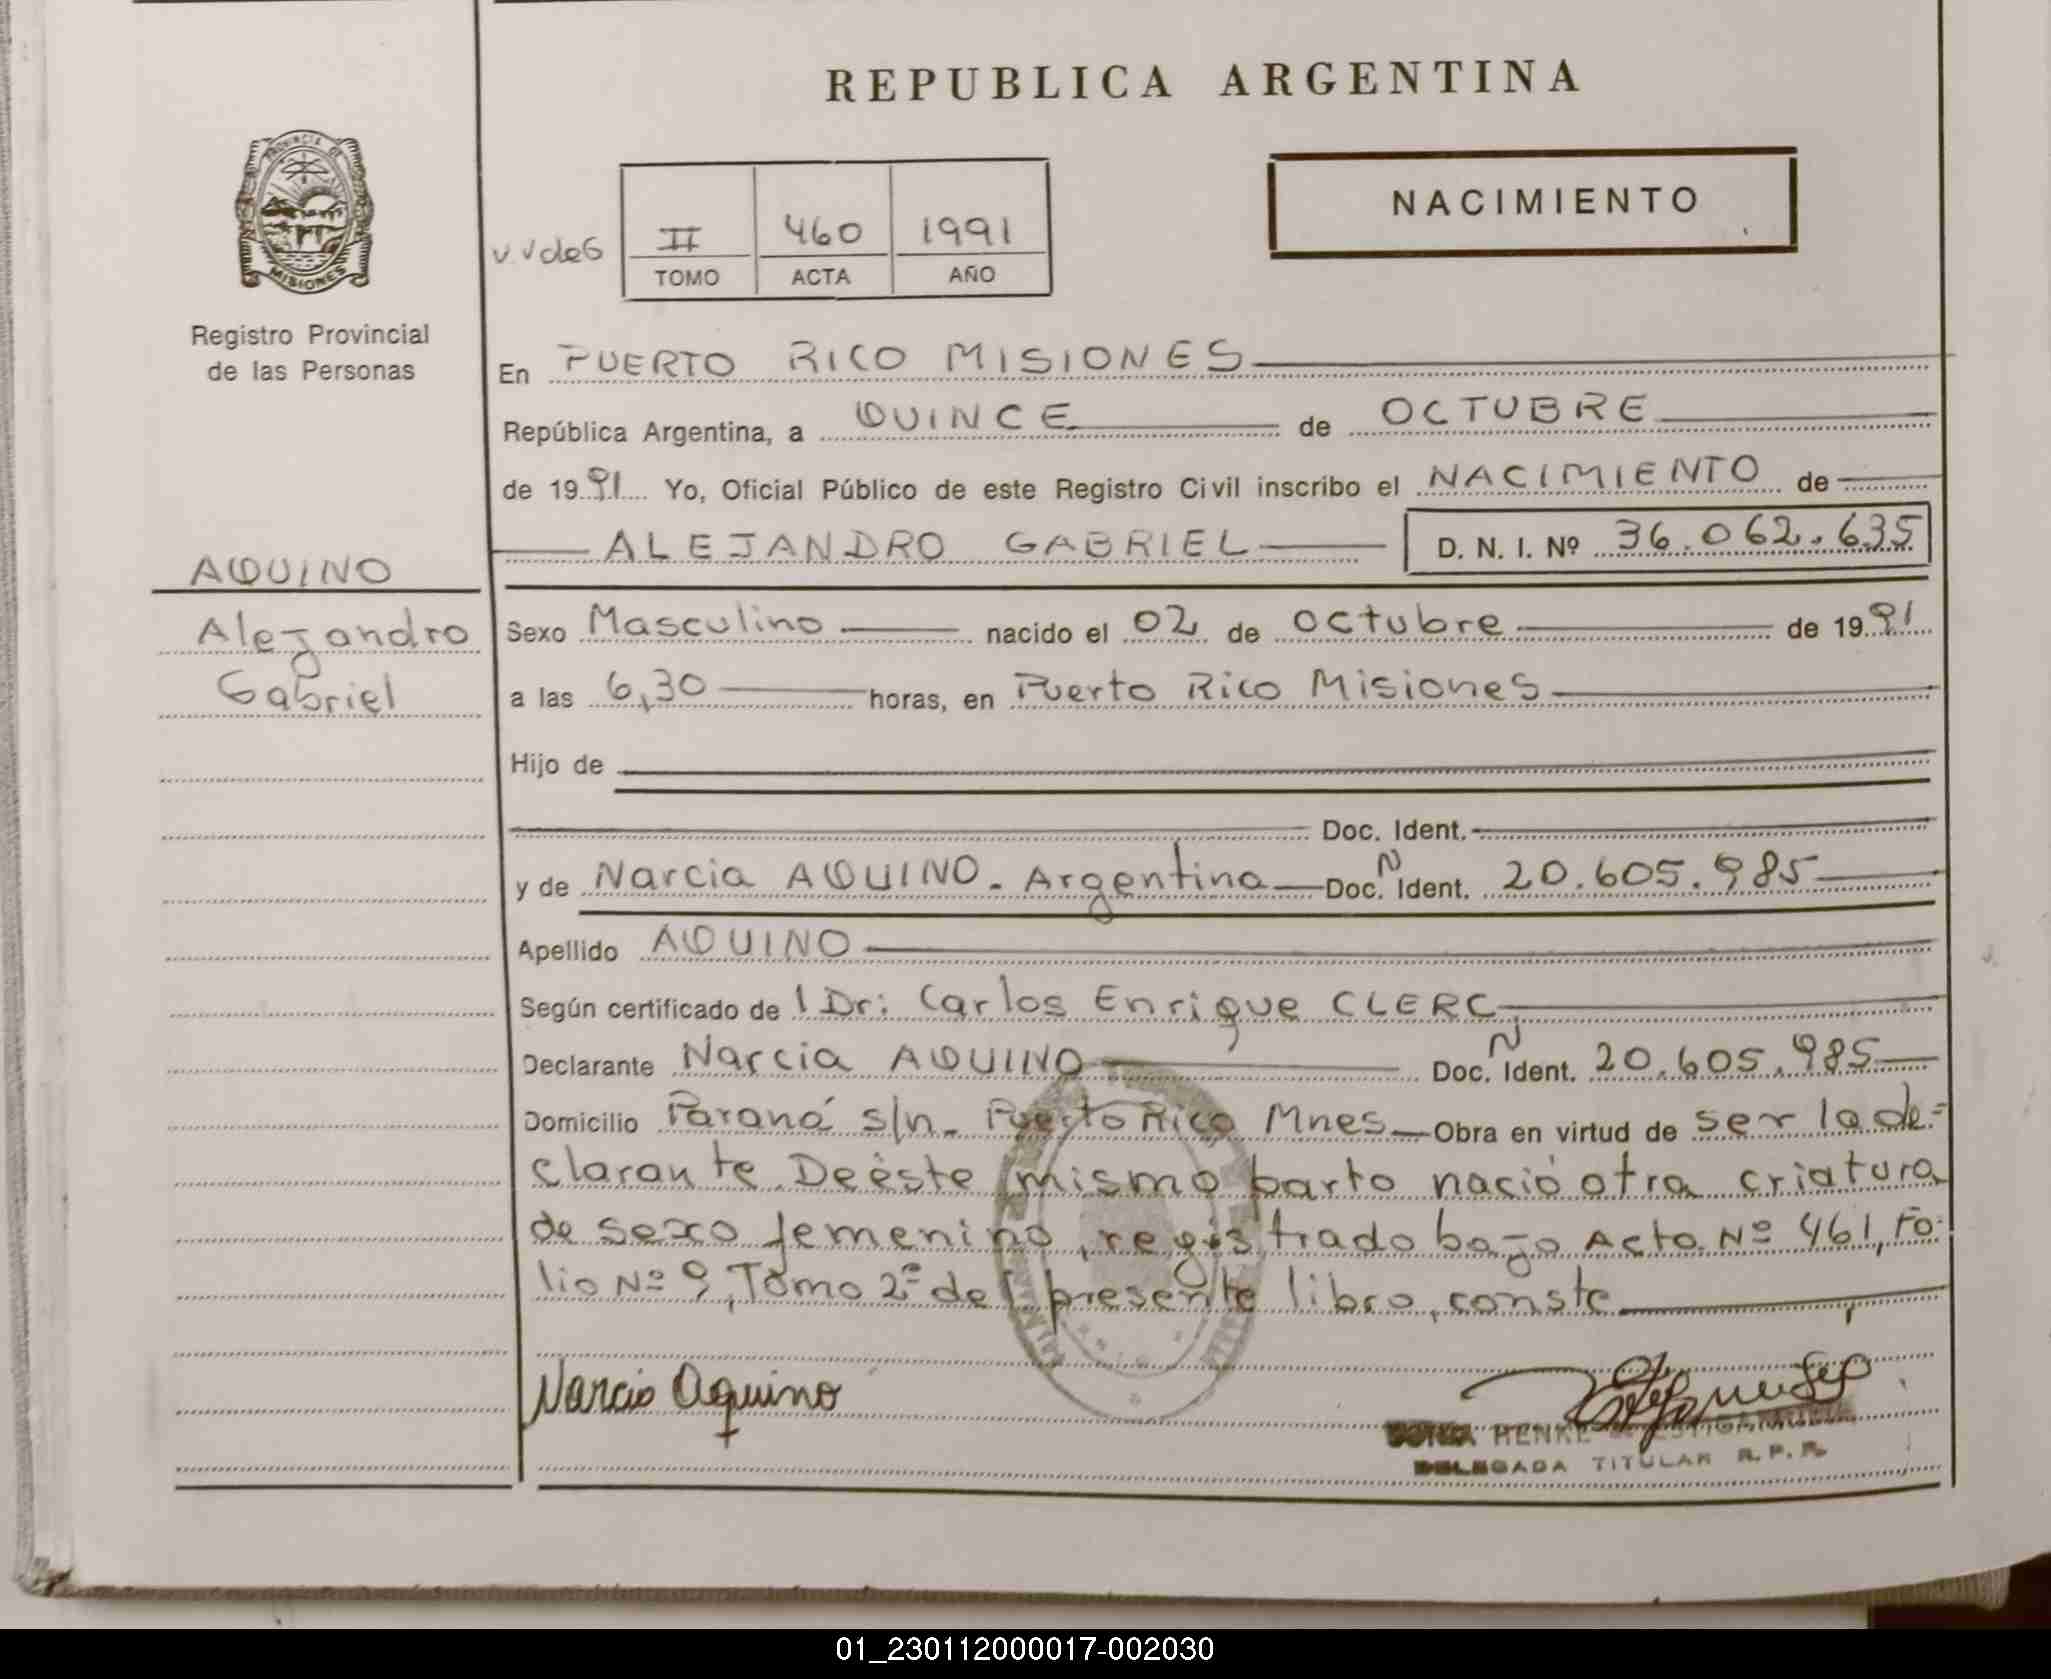 REPUBLICA ARGENTINA
PROVINCIA DE
MISIONES
Registro Provincial
de las Personas
NACIMIENTO
II 460 1991
TOMO ACTA AÑO
En PUERTO RICO MISIONES
República Argentina, a QUINCE de OCTUBRE
de 1991 Yo, Oficial Público de este Registro Civil inscribo el NACIMIENTO de
ALEJANDRO GABRIEL D. N. I. Nº 36.062.635
AQUINO
Alejandro
Gabriel
Sexo Masculino nacido el 02 de Octubre de 1991
a las 6,30 horas, en Puerto Rico Misiones
Hijo de
Doc. Ident.
y de Narcia AQUINO. Argentina Doc. N Ident. 20.605.985
Apellido AQUINO
Según certificado de l Dr: Carlos Enrique CLERC
Declarante Narcia AQUINO Doc. N Ident. 20.605.985
Domicilio Paraná s/n. Puerto Rico Mnes Obra en virtud de ser la de=
clarante. De éste mismo parto nació otra criatura
de sexo femenino, registrado bajo Acta Nº 461, Fo-
lio Nº 9, Tomo 2º del presente libro, conste
Narcia Aquino
HENKE
DELEGADA TITULAR R. P. P.
01_230112000017-002030